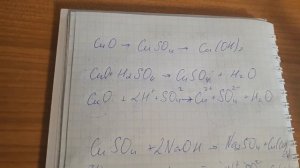 CuO → CuSO₄ → Cu(OH)₂
CuO + H₂SO₄ → CuSO₄ + H₂O
CuO + 2H⁺ + SO₄²⁻ → Cu²⁺ + SO₄²⁻ + H₂O
CuSO₄ + 2NaOH → Na₂SO₄ +